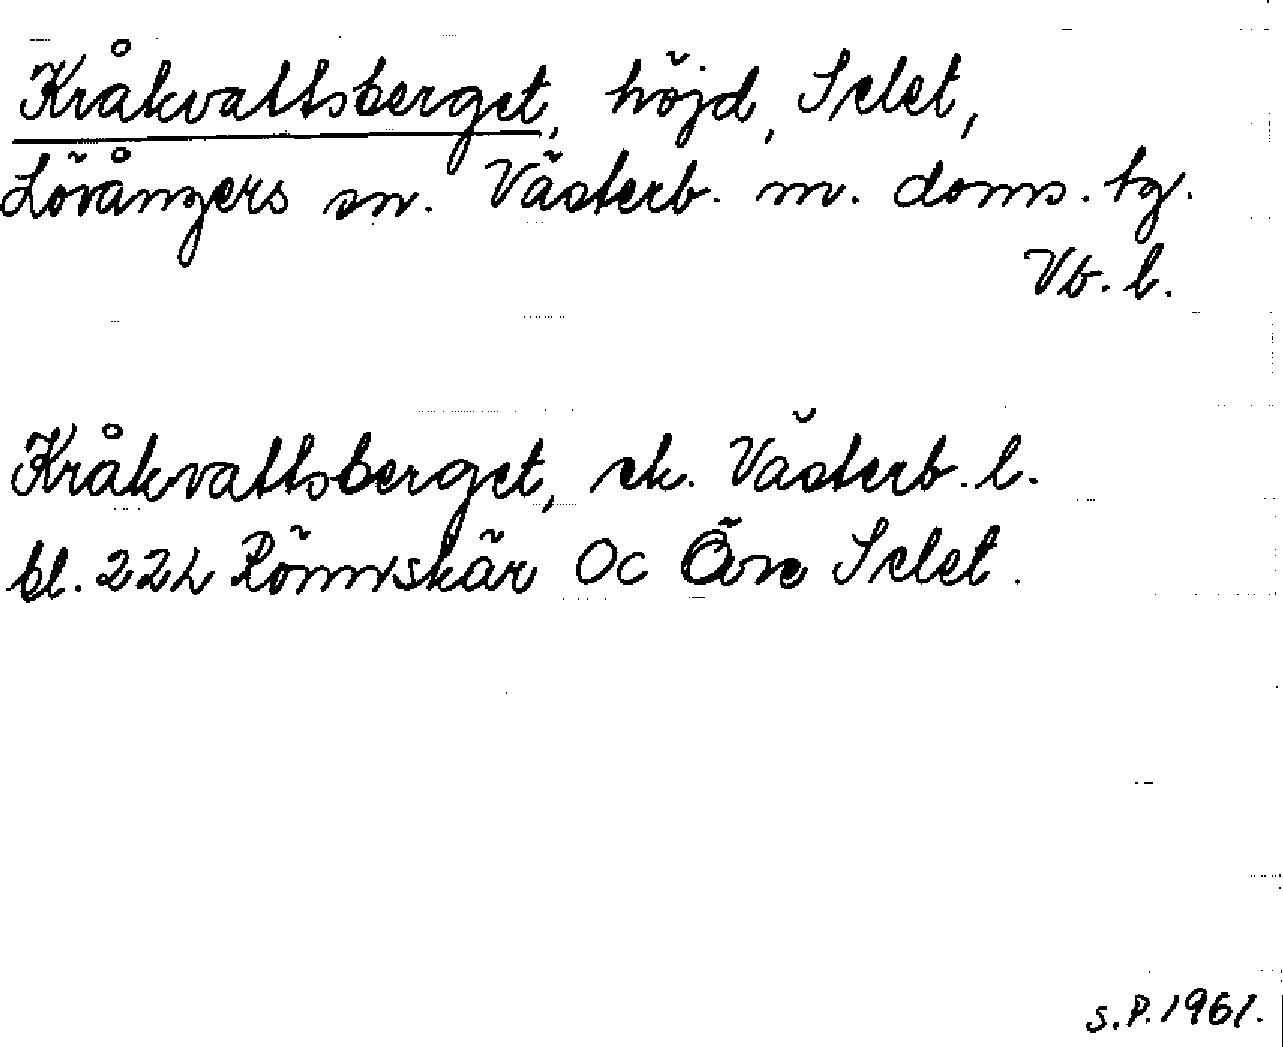 Kråkvattsberget, höjd, Selet,
Lövångers sn. Västerb. m. doms. tg.
Vb. l.
Kråkvattsberget, ek. Västerb. l.
bl. 22h Rönnskär OC Öne Selet.
S.P. 1961.